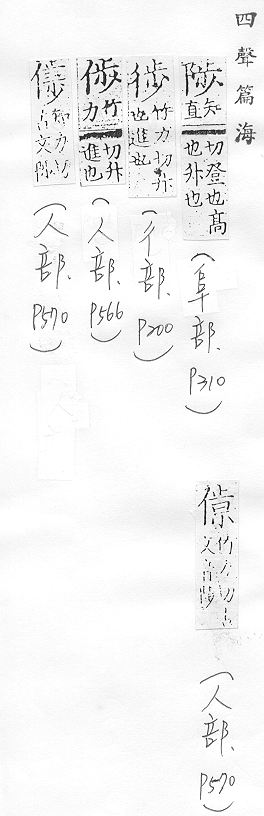 四聲篇海
陟 知直切登也高也升也
(阜部.P310)
竹力切升也進也
(彳部.P200)
竹力切升進也
(人部.P566)
知力切古文陟
(人部.P570)
竹力切古文音陟
(人部.P570)